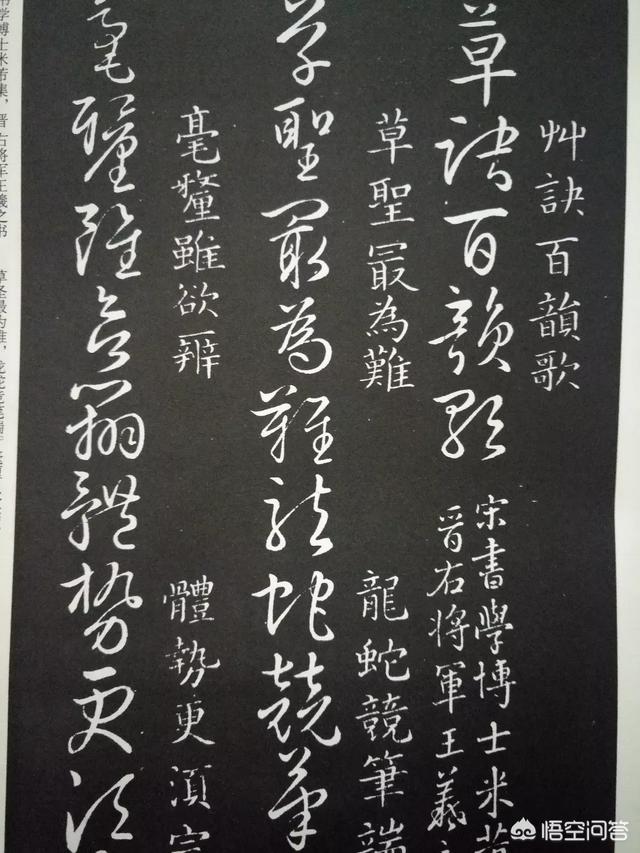 艸訣百韻歌
草訣百韻歌
宋書學博士米芾
晉右將軍王羲
草聖最為難
龍蛇競筆端
草聖最為難龍蛇競筆
毫釐雖欲辨
體勢更湏
毫釐雖欲辨體勢更須
书学博士米芾集，晋右将军王羲之书
草圣最为难，龙蛇竞笔端。
悟空问答